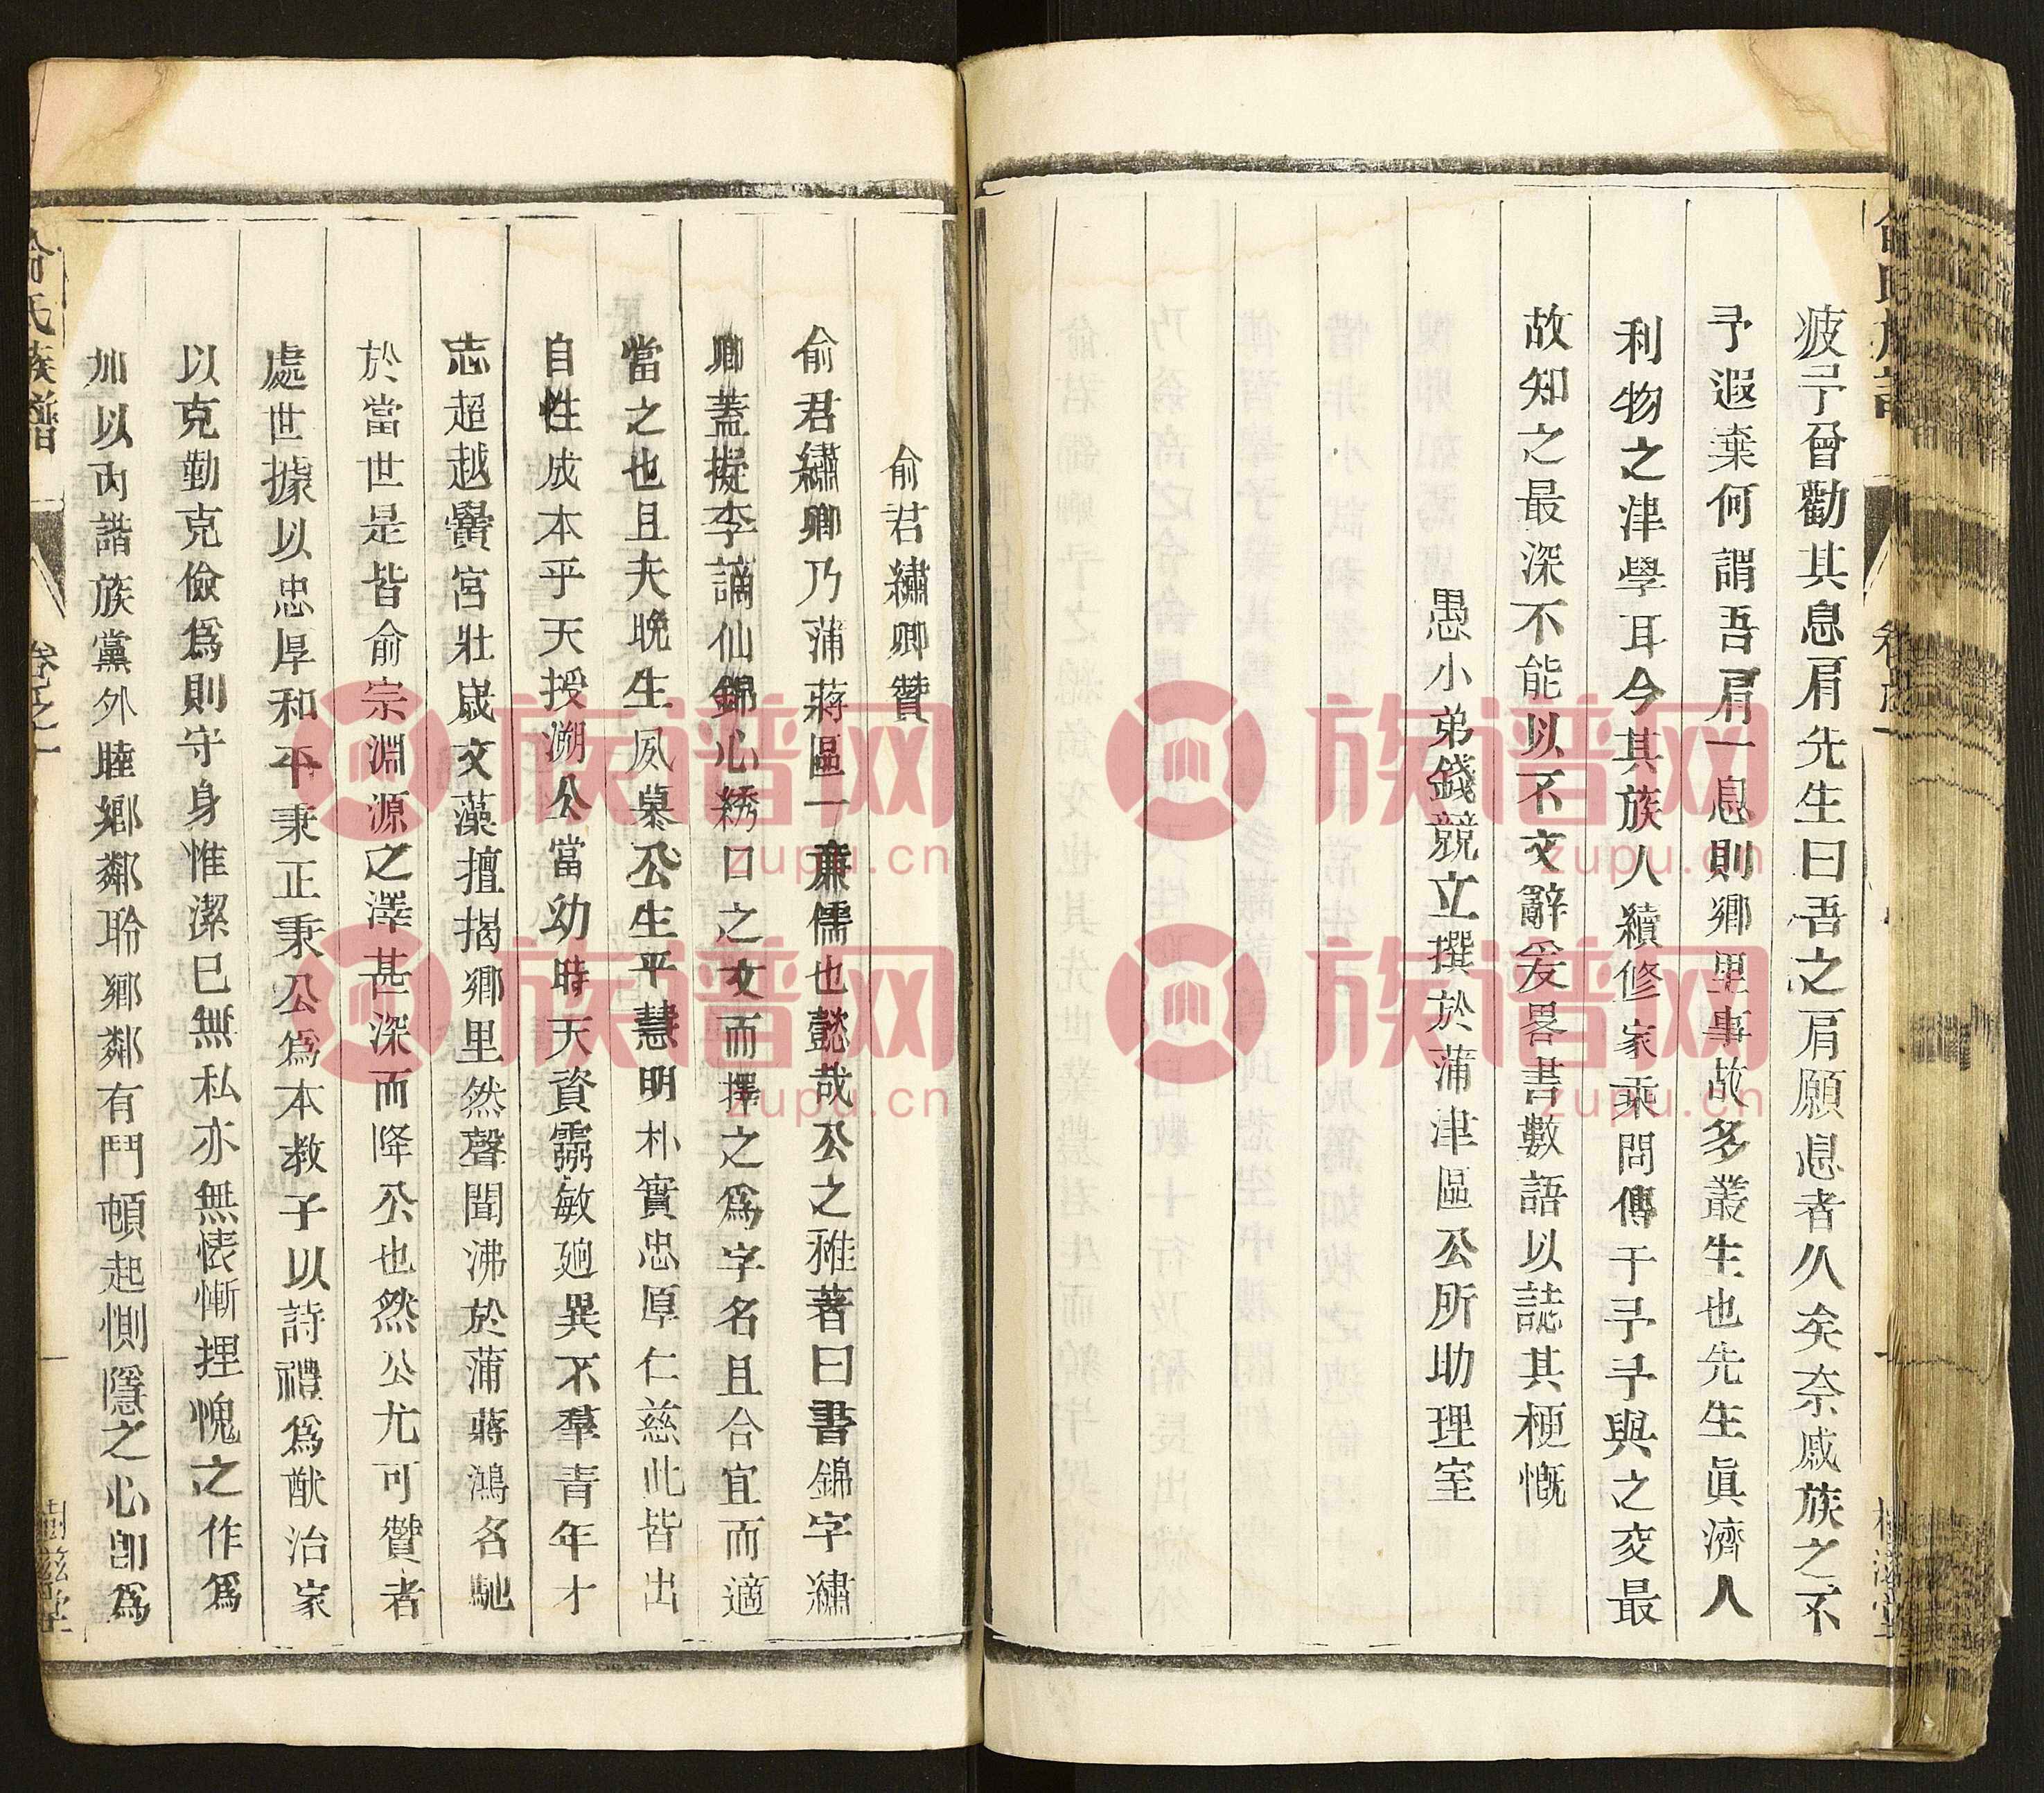 疲予曾勸其息肩先生曰吾之肩願息者久矣奈戚族之不
予遐棄何謂吾肩一息則鄉里事故多叢生也先生眞濟人
利物之津學耳今其族人續修家乘問傳于予予與之交最
故知之最深不能以不文辭爰畧書數語以誌其梗慨
愚小弟錢競立撰於蒲津區公所助理室
俞君繡卿贊
俞君繡卿乃蒲蔣區一廉儒也懿哉公之雅著曰書錦字繡
卿蓋擬李謫仙錦心綉口之文而擇之爲字名且合宜而適
當之也且夫晚生夙慕公生平慧明朴實忠厚仁慈此皆出
自性成本乎天授溯公當幼時天資霛敏廻異不羣青年才
志超越黌宮壯歲文藻擅揭鄉里然聲聞沸於蒲蔣鴻名馳
於當世是皆俞宗淵源之澤甚深而降公也然公尤可贊者
處世據以忠厚和平秉正秉公爲本教子以詩禮爲猷治家
以克勤克儉爲則守身惟潔已無私亦無悕慚捚愧之作爲
加以內諧族黨外睦鄉鄰聆鄉鄰有鬥頓起惻隱之心卽爲
俞氏族譜
卷之一
一
樹滋堂
族谱网
zupu.cn
族谱网
zupu.cn
族谱网
zupu.cn
族谱网
zupu.cn